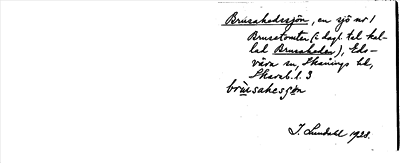 Brusahedssjön, en sjö nr 1
Brusetomten (i dagl. tal kal-
lad Brusaheden), Eds-
vära sn, Skånings hd,
Skarab. l. 3
brusahesjøn
J. Lundahl 1928.